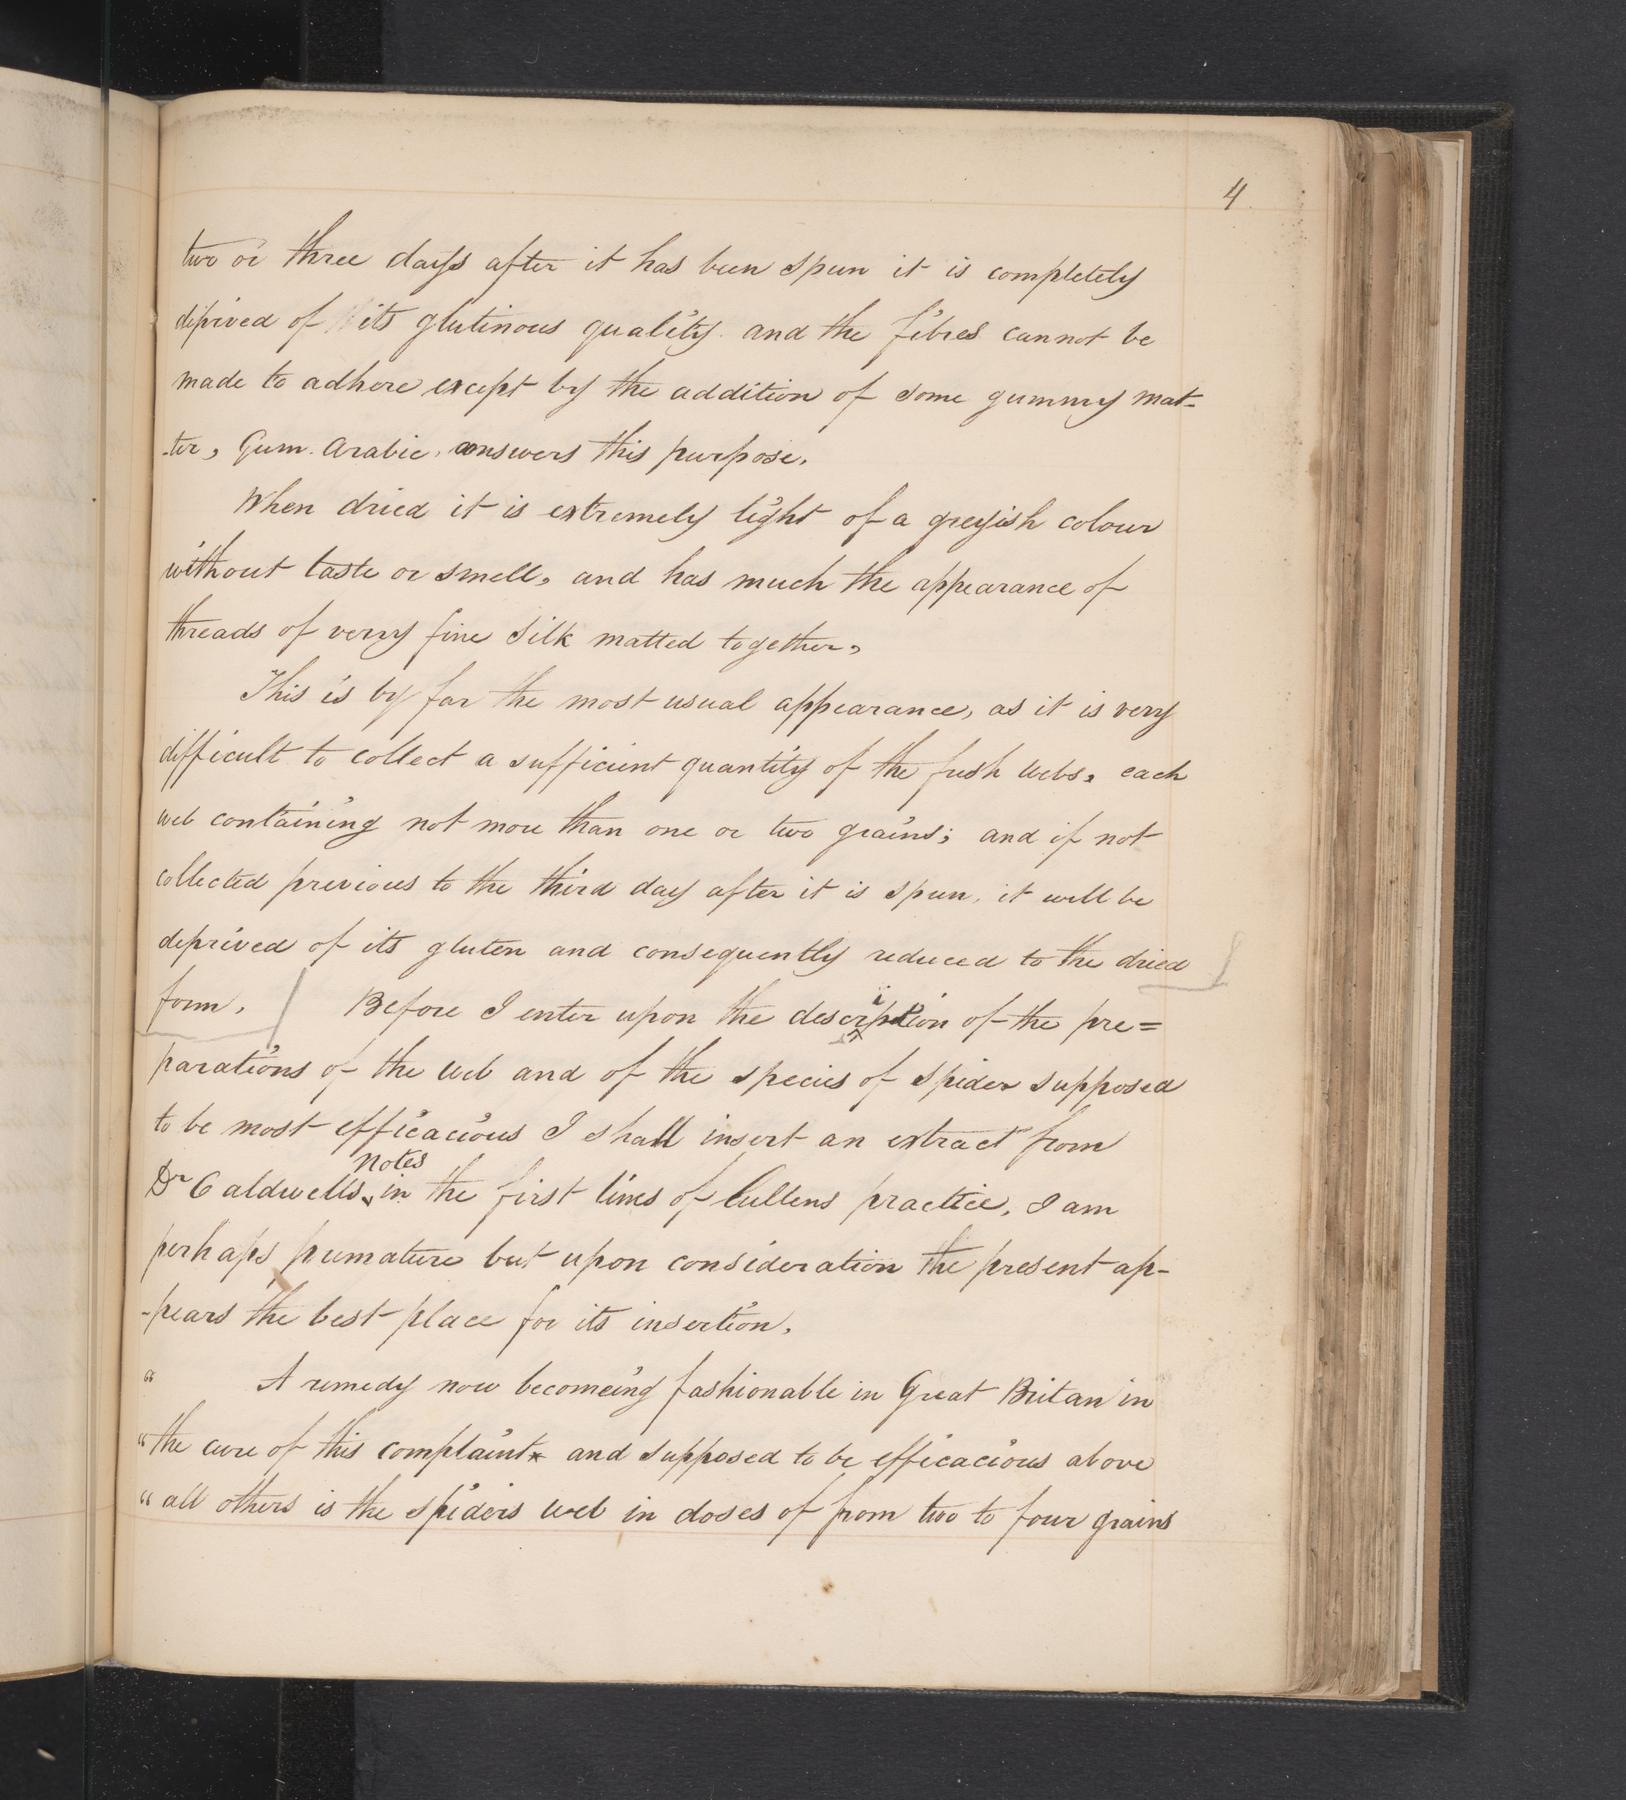 4
two or three days after it has been spun it is completely
deprived of its glutinous quality. and the fibres cannot be
made to adhere except by the addition of some gummy mat-
-ter, Gum. Arabic. answers this purpose.
When dried it is extremely light of a greyish colour
without taste or smell, and has much the appearance of
threads of very fine silk matted together,
This is by far the most usual appearance, as it is very
difficult to collect a sufficient quantity of the fresh webs, each
web containing not more than one or two grains; and if not
collected previous to the third day after it is spun, it will be
deprived of its gluten and consequently reduced to the dried
form. Before I enter upon the description of the pre=
parations of the web and of the species of spider supposed
to be most efficacious I shall insert an extract from
Dr Caldwells notes in the first lines of Cullens practice, I am
perhaps premature but upon consideration the present ap-
-pears the best place for its insertion.
" A remedy now becomeing fashionable in Great Britan in
"the cure of this complaint* and supposed to be efficacious above
"all others is the spiders web in doses of from two to four grains